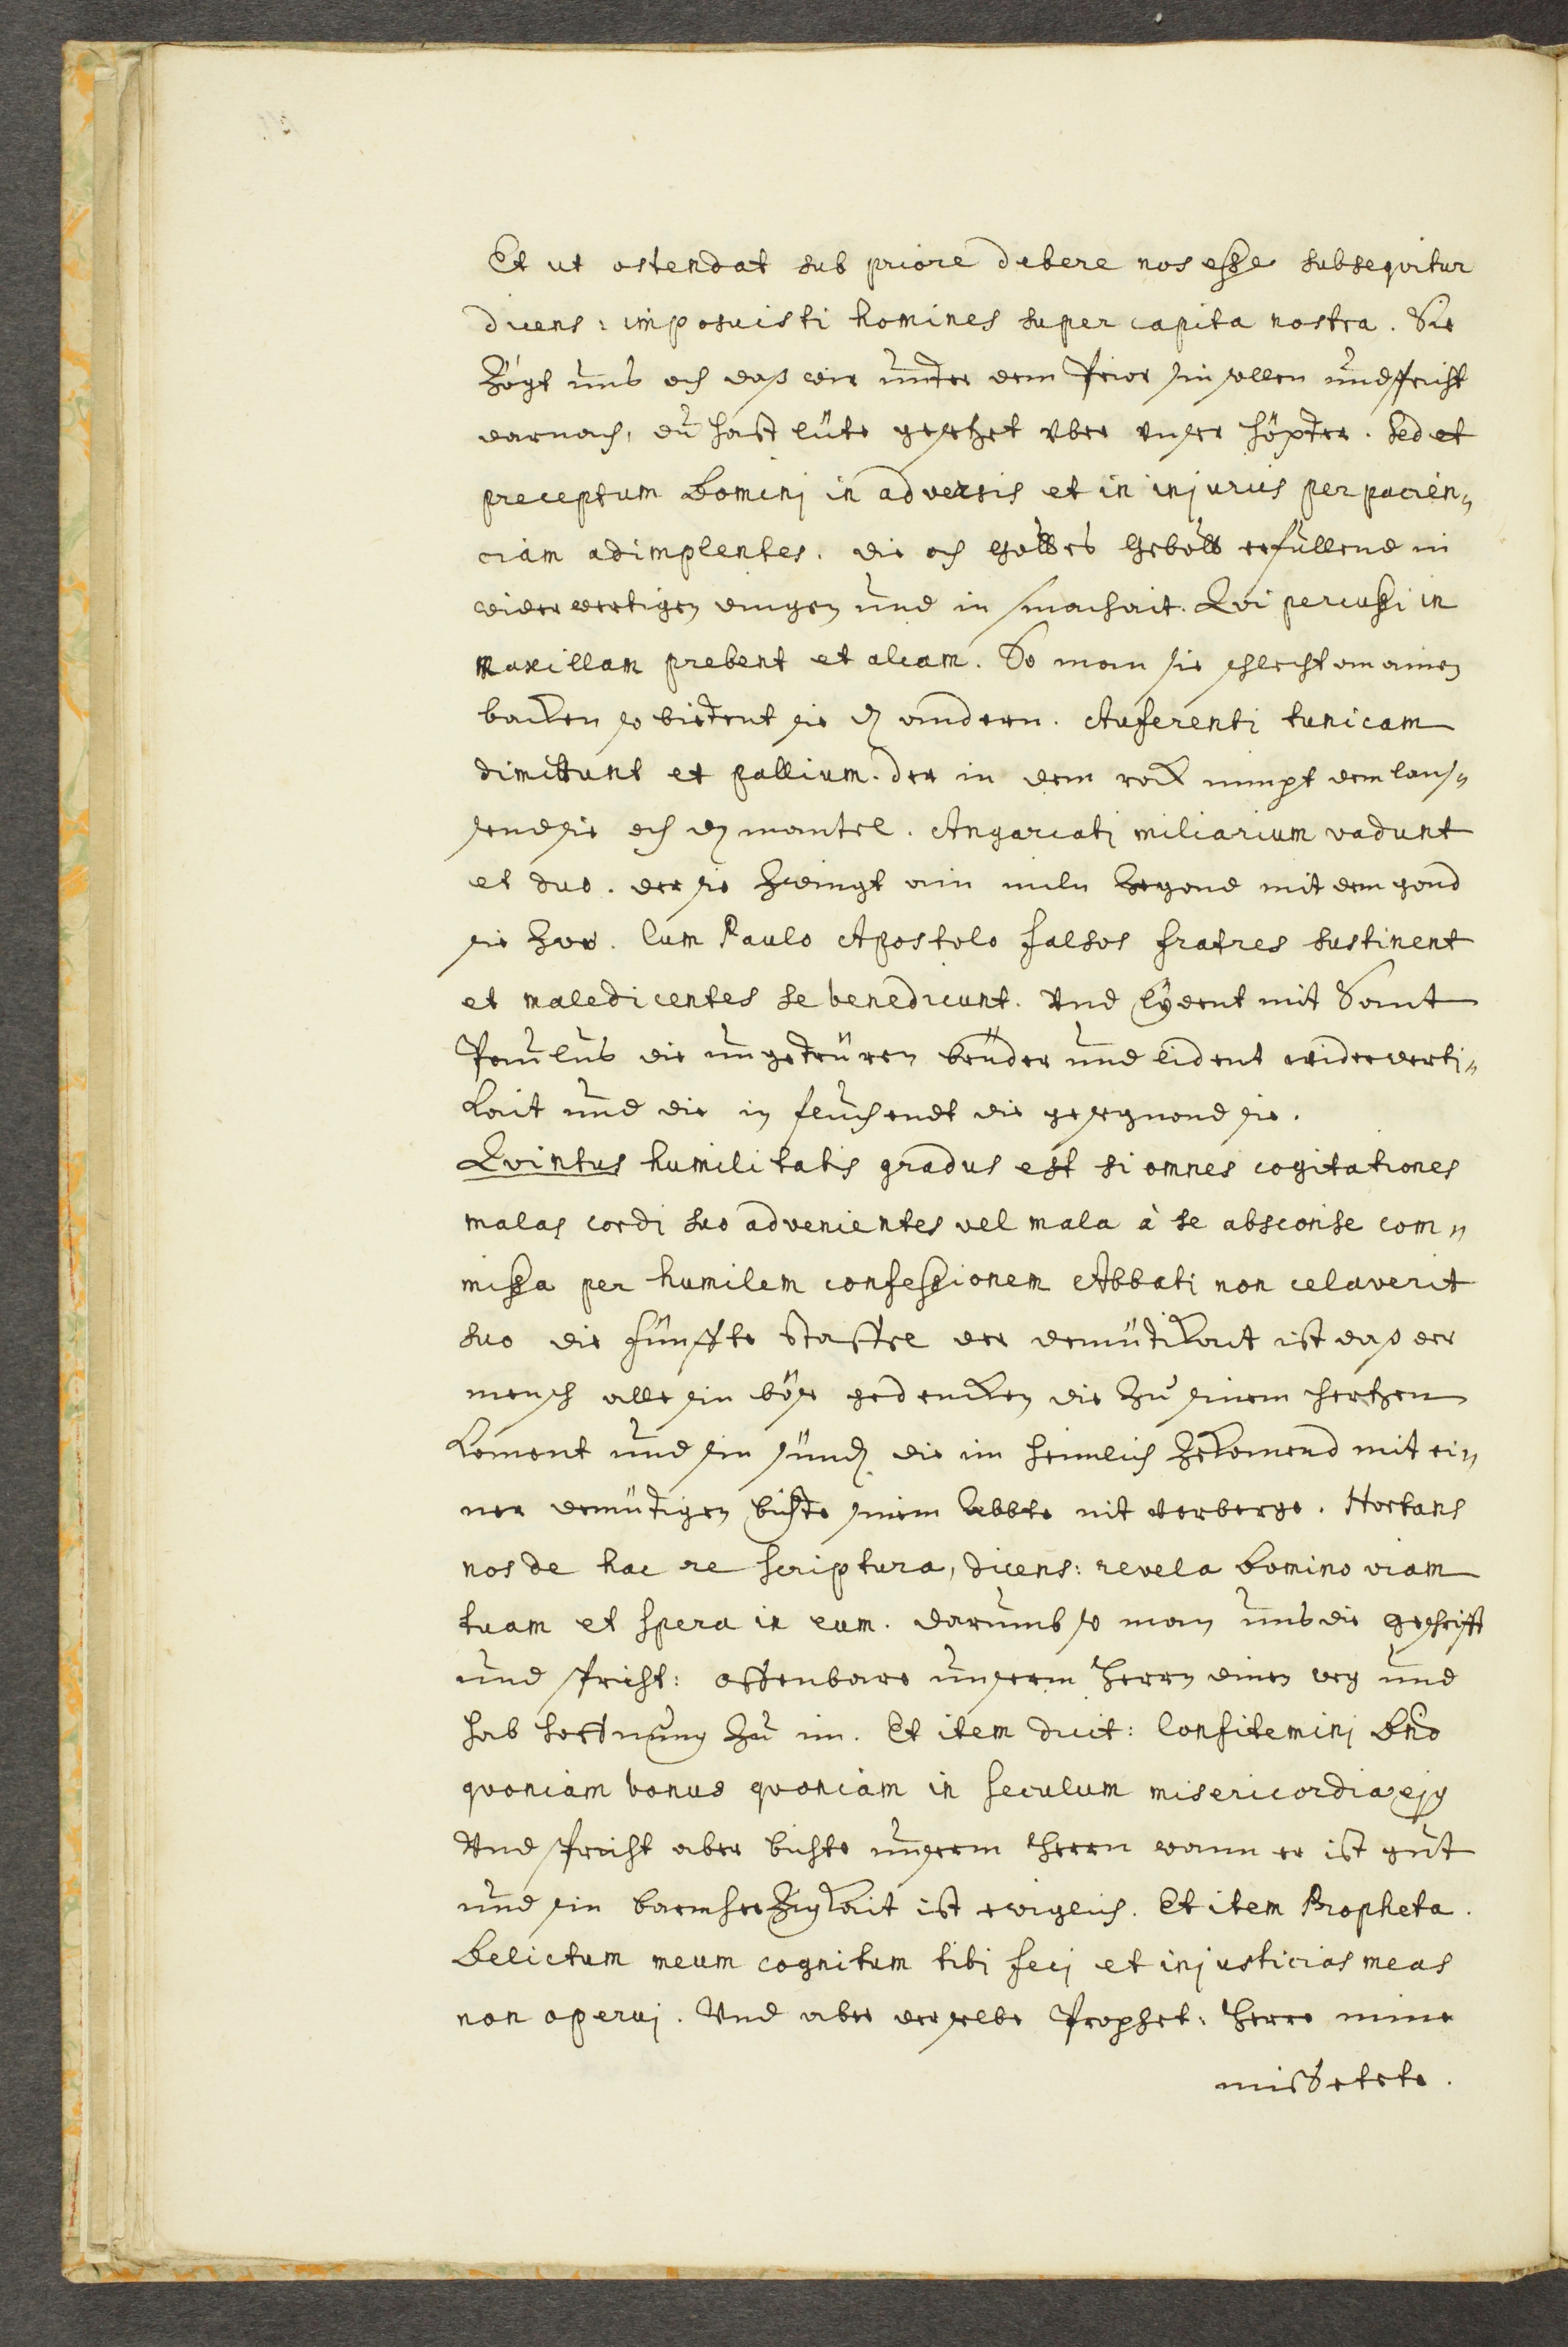 Et ut ostendat sub priore debere nos esse subsequitur
dicens: imposuisti homines super capita nostra. Sie
zögt uns och daß wir under dem Prior sin sollen und spricht
darnach, du hast lüte gesetzet vber vnser höpter. Sed et
preceptum Dominj in adversis et in injuriis per pacien„
ciam adimplentes. die och Gottes Gebott erfüllend in
widerwertigen dingen und in smachait. Qvi percussi in
maxillam prebent et aliam. So man sie schlecht an ainen
backen so bietent sie den andern. Auferenti tunicam
dimittunt et pallium. der in dem rock nimpt dem laus„
send sie och den mantel. Angariatj miliarium vadunt
et duo. der sie zwingt ain miln ze gond mit dem gond
sie zwo. Cum Paulo Apostolo falsos fratres sustinent
et maledicentes se benedicunt. Vnd lydent mit Sant
Paulus die ungetrüren brüder und lident widerwerti„
kait und die in fluchendt die gesegnond sie.
Qvintus humilitatis gradus est si omnes cogitationes
malas cordj suo advenientes vel mala à se absconse com„
missa per humilem confessionem Abbati non celaverit
suo die fünffte Staffel der demütikait ist daß der
mensch alle sin böse gedencken die zu sinem hertzen
koment und sin sünd die im heimlich zekomend mit ei„
ner demütigen bichte sinem Abbte nit verberge. Hortans
nos de hac re scriptura, dicens: revela Domino viam
tuam et spera in eum. darumb so man uns die geschrift
und spricht: offenbare unserm Herrn dinen weg und
hab hoffnung zu im. Et item dicit: Confiteminj Dno
qvoniam bonus qvoniam in seculum misericordia ejus
Vnd spricht aber bichte unserm Herrn wann er ist gut
und sin barmherzigkait ist ewiglich. Et item Propheta.
Delictum meum cognitum tibi fecj et injusticias meas
non operuj. Vnd aber derselbe Prophet: Herre mine
missetete.